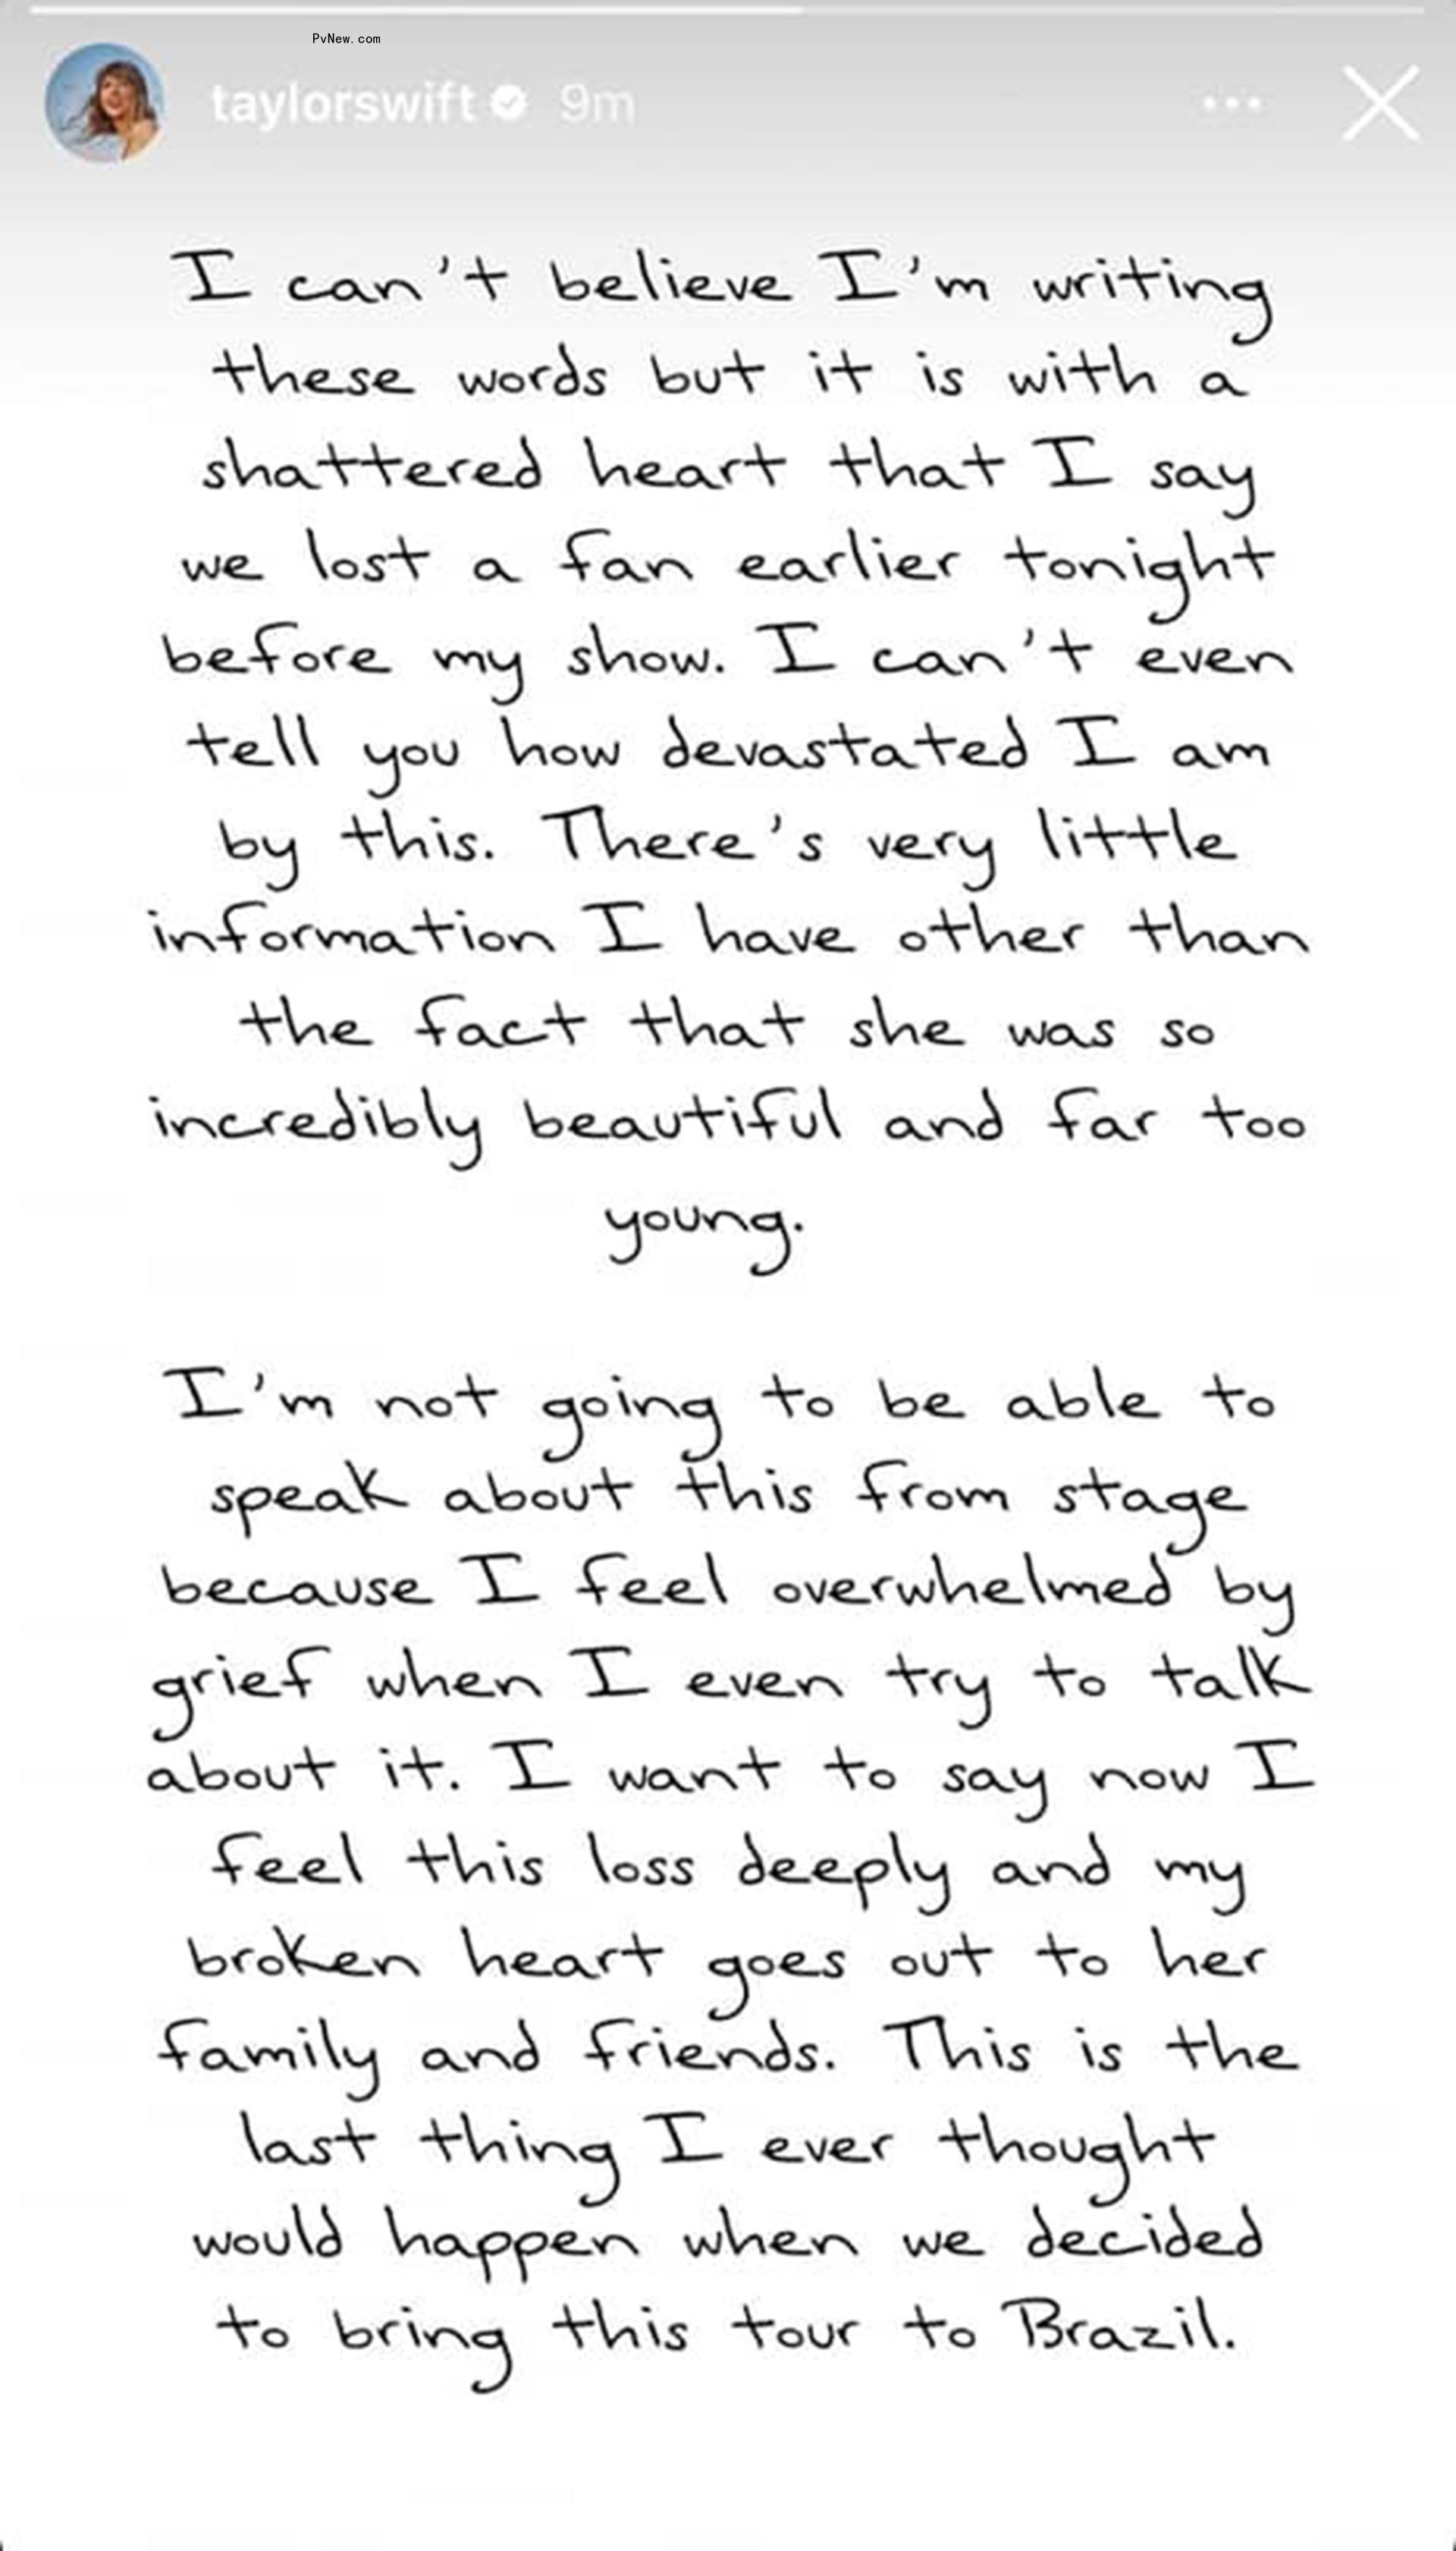 PvNew.com
taylorswift 9m
I can't believe I'm writing
these words but it is with a
shattered heart that I say
we lost a fan earlier tonight
before my show. I can't even
tell you how devastated I am
by this. There's very little
information I have other than
the fact that she was so
incredibly beautiful and far too
young.
I'm not going to be able to
speak about this from stage
because I feel overwhelmed by
grief when I even try to talk
about it. I want to say now I
feel this loss deeply and my
broken heart goes out to her
family and friends. This is the
last thing I ever thought
would happen when we decided
to bring this tour to Brazil.